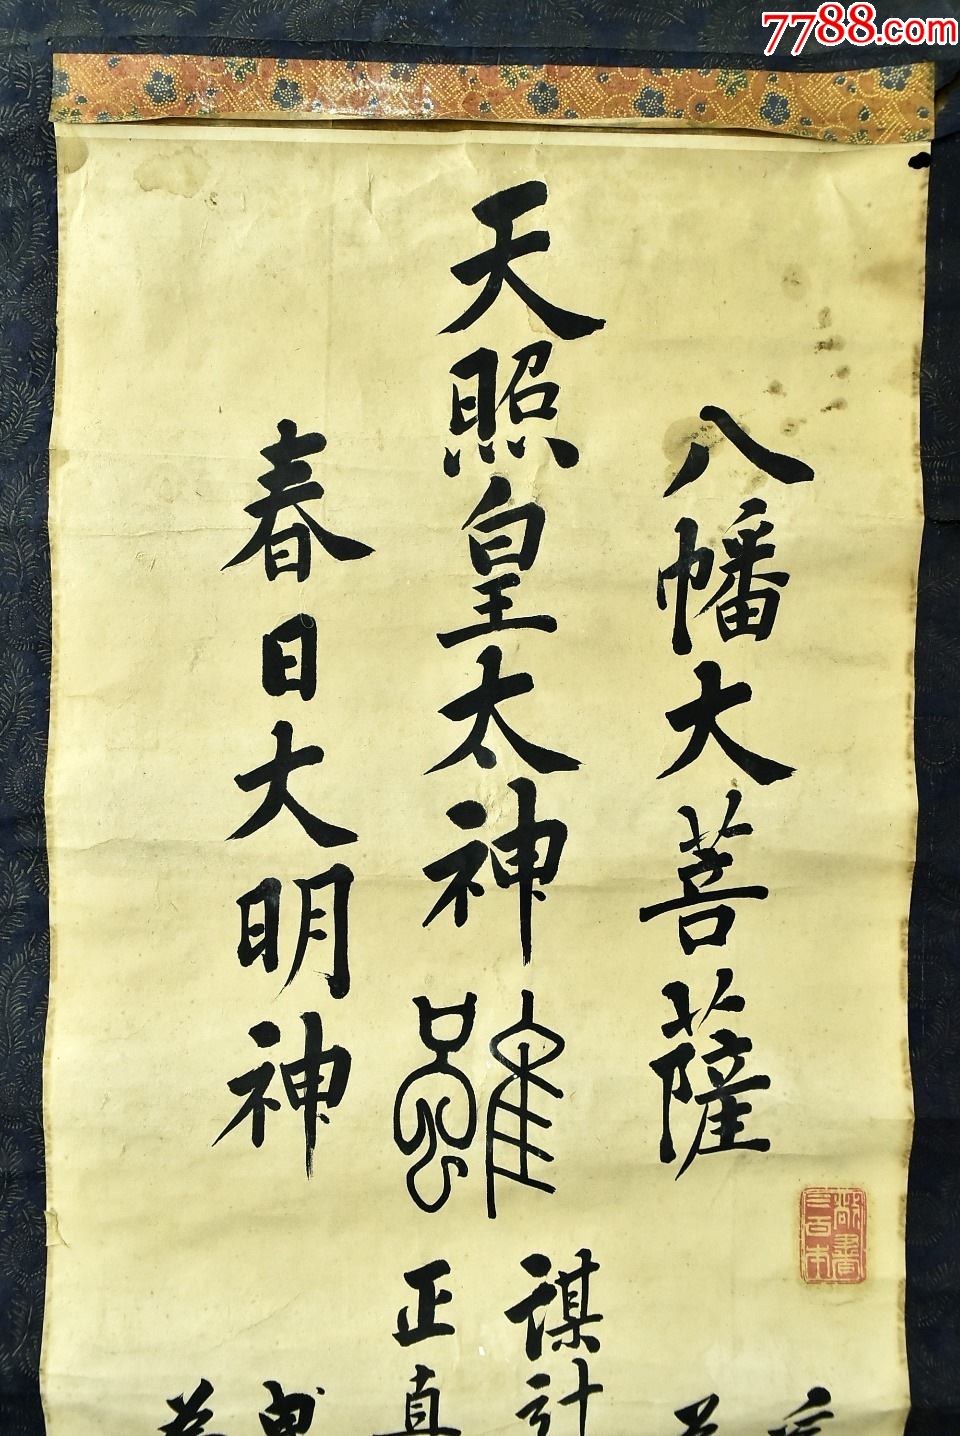 7788.com
八幡大菩薩
天照皇太神
春日大明神
雖
謀計
正直